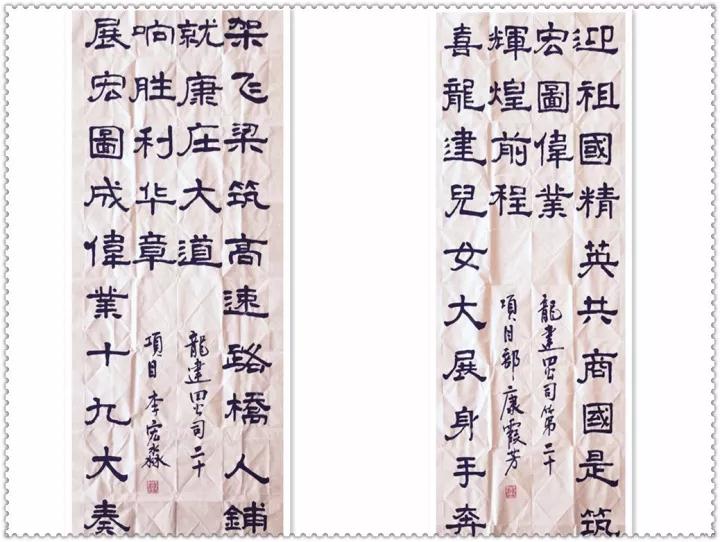 迎祖國精英共商國是筑
宏圖偉業
龍建四公司第二十
輝煌前程
項目部 康霞芳
喜龍建兒女大展身手奔
架飞梁筑高速路橋人鋪
就康庄大道
龍建四公司二十
响胜利华章
項目 李宏淼
展宏圖成偉業十九大奏